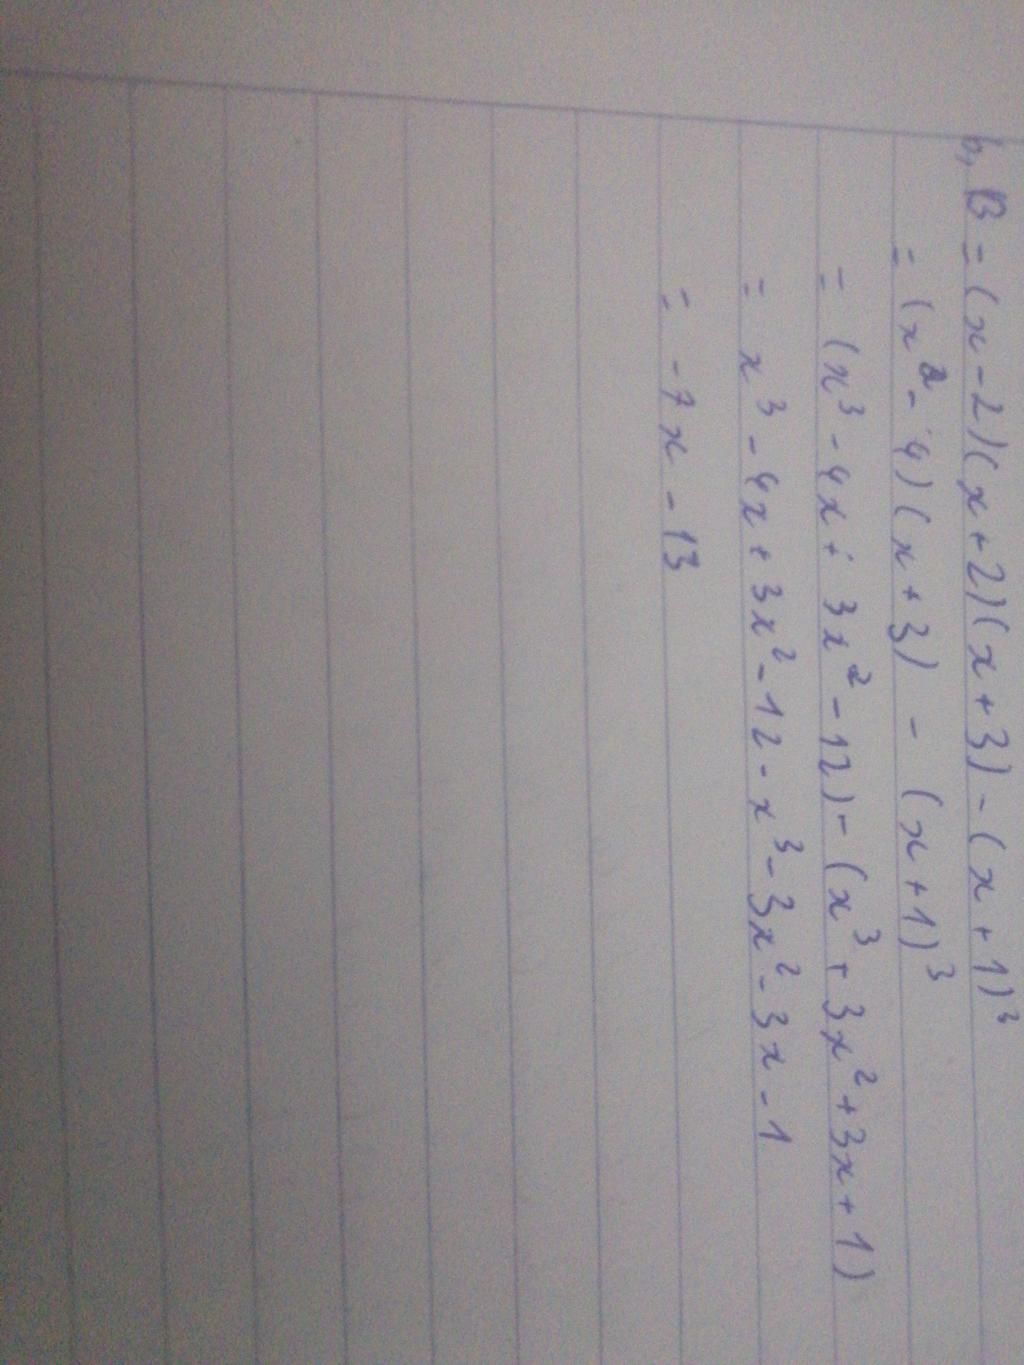 b, B = (x - 2)(x + 2)(x + 3) - (x + 1)³
= (x² - 4)(x + 3) - (x + 1)³
= (x³ - 4x + 3x² - 12) - (x³ + 3x² + 3x + 1)
= x³ - 4x + 3x² - 12 - x³ - 3x² - 3x - 1
= -7x - 13